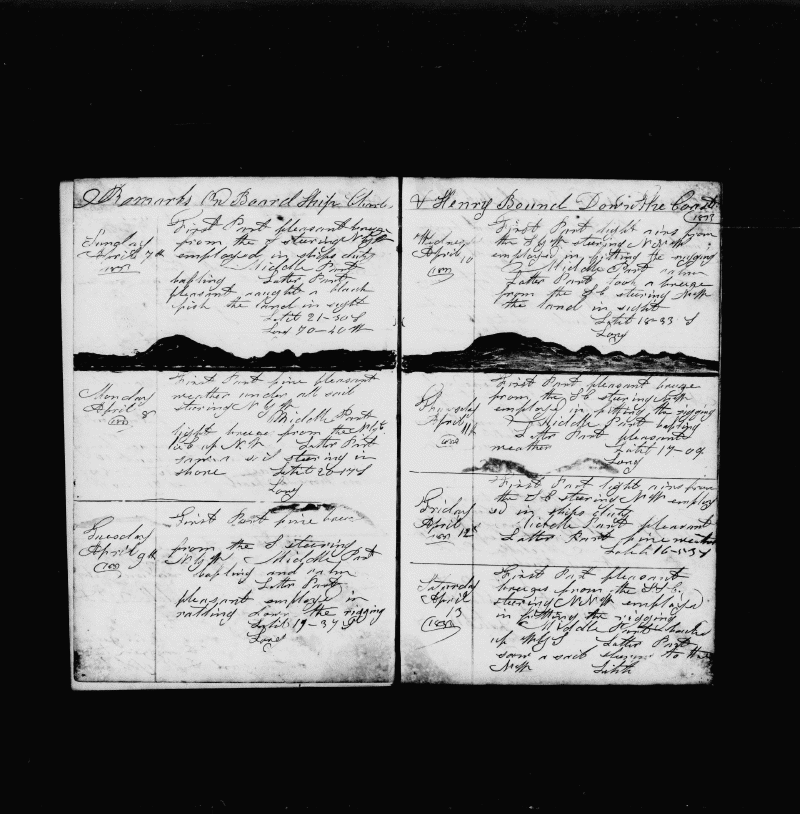 Remarks On Board Ship Charls
Sunday
April 7th
First Part pleasant breeze
from the S steering
employed in ships duty
Middle Part
bafling Latter Part
pleasant caught a black
fish the land in sight
Latit 21-30 S
Long 70-40 W
Monday
April 8
First Part fine pleasant
weather under all sail
steering N W
Middle Part
light breeze from the
Latter Part
saw a sail steering in
shore Latit 20-17 S
Long
Tuesday
April 9th
First Part fine breeze
from the S steering
Middle Part
bafling and calm
Latter Part
pleasant employd in
ratling down the rigging
Latit 19-37 S
Long
& Henry Bound Down the Coast
Wednes
April 10
First Part light airs from
the steering
employd in fitting the rigging
Middle Part calm
Latter Part took a breeze
from the S E steering
the land in sight
Latit 18-33 S
Long
Thursday
April 11th
First Part pleasant breeze
from the S E steering
employd in fitting the rigging
Middle Part bafling
Latter Part pleasant
weather Latit 17-09
Long
Friday
April 12th
First Part light airs from
the S E steering employ
ed in ships duty
Middle Part pleasant
Latter Part fine weather
Latit 16-13 S
Saturday
April
13
First Part pleasant
breezes from the S E
steering employd
in fitting the rigging
Middle Part
Latter Part
saw a sail steering to the
Latit